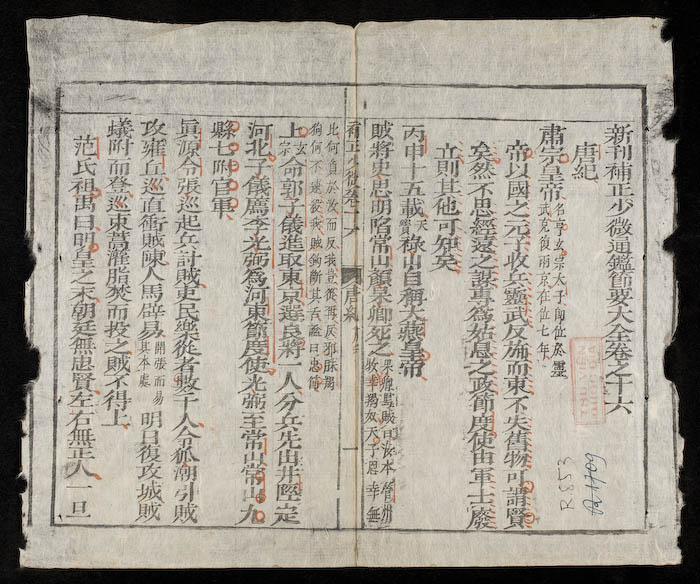 新刊補正少微通鑑節要大全卷之十六
唐紀
肅宗皇帝名亨玄宗太子卽位於靈武克復兩京在位七年
帝以國之元子收兵靈武反旆而東不失舊物可謂賢
矣然不思經遠之謀專爲姑息之政節度使由軍士廢
立則其他可知矣
丙申十五載天寶祿山自稱大燕皇帝
賊將史思明陷常山顏杲卿死之杲卿罵賊曰汝本營州牧羊羯奴天子恩幸無
補正少微卷之十六 唐紀 一
比何負於汝而反我豈從汝反邪臊羯狗何不速殺我賊鉤斷其舌
上玄宗命郭子儀進取東京選良將一人分兵先出井陘定
河北子儀薦李光弼爲河東節度使光弼至常山常山九
縣七附官軍
眞源令張巡起兵討賊吏民樂從者數千人令狐潮引賊
攻雍丘巡直衝賊陳人馬辟易開張而易其本處明日復攻城賊
蟻附而登巡束蒿灌脂焚而投之賊不得上
范氏祖禹曰明皇之末朝廷無忠賢左右無正人一旦
R853